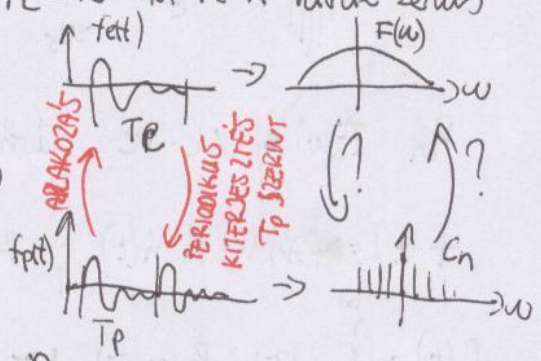 fe(t)
F(ω)
→
ω
Te
ABLAKOZÁS
PERIODIKUS
KITERJESZTÉS
Tp SZERINT
?
?
fp(t)
Cn
→
ω
Tp